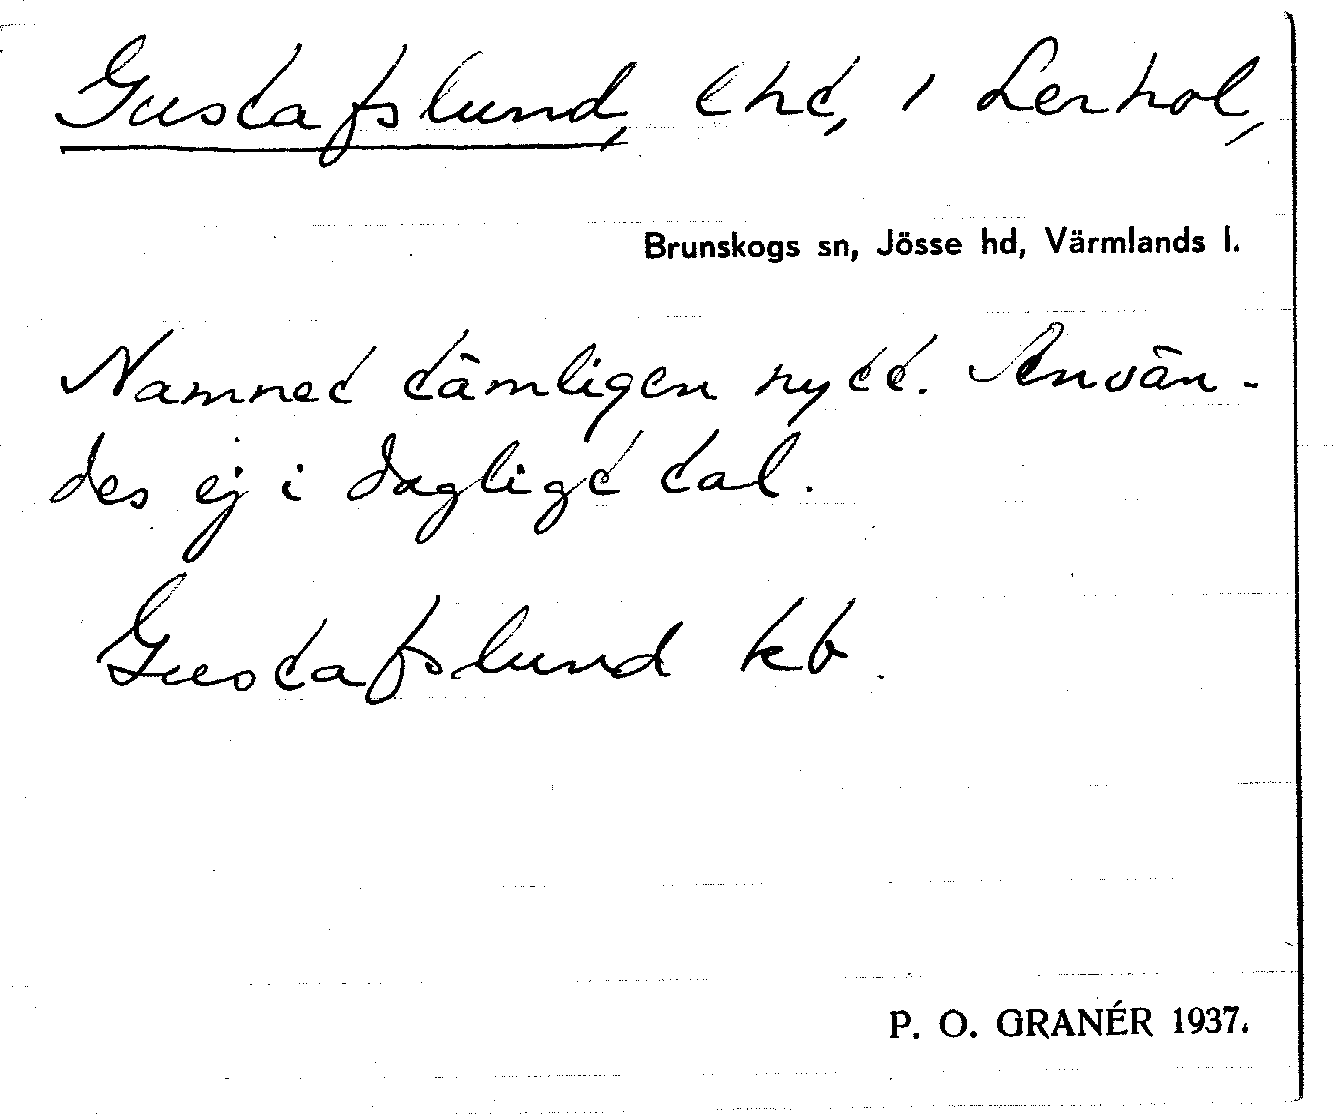 Gustafslund, lht, i Lerhol,
Brunskogs sn, Jösse hd, Värmlands l.
Namnet tämligen nytt. Använ-
des ej i dagligt tal.
Gustafslund kb.
P. O. GRANÉR 1937.